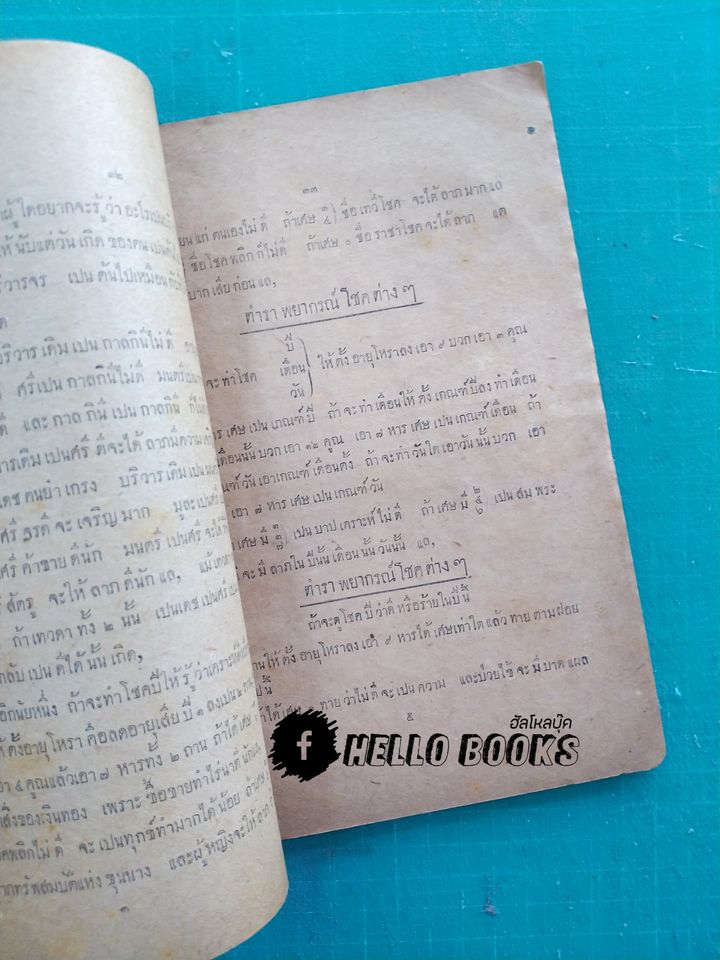 ๓๒
ผู้ใดอยากจะรู้ว่า อะไรเปน
ให้ นับแต่วัน เกิด ของตน เปน
วารจร เปน ต้นไปเหมือน
บริวาร เดิม เปน กาลกินีไม่ดี
ศรีเปน กาลกินีไม่ดี มนตรีเปน
ดี และ กาล กินี เปน กาลกินี ก็
ารเดิมเปนศรี ดีจะได้ ลาภมีความ
เดช คนยำ เกรง บริวาร เดิม เปน
ศรี จะ เจริญ มาก มูละเปนศรี
ศรี ค้าขาย ดีนัก มนตรี เปนศรี จะได้
สัตรู จะให้ ลาภ ดีนัก แล, แม้
ถ้า เทวดา ทั้ง ๒ นั้น เปนเดช เปนศรี
กลับ เปน ดีได้ นั้น เถิด,
อีกนัยหนึ่ง ถ้าจะทำโชคปีให้ รู้ ว่าเคราะห์
ตั้งอายุโหรา คือลดอายุเสีย ปี ๑ ลงเปน ๒
๕ คูณแล้วเอา ๗ หารทั้ง ๒ ถาน ถ้าได้เศษ
สิ่งของเงินทอง เพราะ ซื้อขายทำไร่นาดี นักแล
คพลิกไม่ ดี จะ เปนทุกข์ทำมากได้ น้อย ถ้าเศษ
ทรัพสมบัติแห่ง ขุนนาง และผู้หญิงจะให้ ลาภ
๓๓
ยน แก่ ตนเองไม่ ดี ถ้าเศษ ๓ ๔ ชื่อ เทวีโชค จะได้ ลาภ มาก แล
ชื่อโชค พลิก ก็ไม่ดี ถ้าเศษ ๐ ชื่อ ราชาโชค จะได้ ลาภ แต่
บาก เสีย ก่อน แล,
ตำรา พยากรณ์ โชค ต่าง ๆ
จะ ทำโชค ปี เดือน วัน ให้ ตั้ง อายุโหราลง เอา ๙ บวก เอา ๓ คูณ
หาร เศษ เปน เกณฑ์ ปี ถ้า จะ ทำ เดือนให้ ตั้ง เกณฑ์ ปีลง ทำ เดือน
เดือนนั้น บวก เอา ๑๒ คูณ เอา ๗ หาร เศษ เปน เกณฑ์ เดือน ถ้า
วัน เอาเกณฑ์ เดือนตั้ง ถ้า จะ ทำ วันใด เอาวัน นั้น บวก เอา
เอา ๗ หาร เศษ เปน เกณฑ์ วัน
เศษ มี ๑ ๓ ๗ เปน บาป เคราะห์ ไม่ ดี ถ้า เศษ มี ๒ ๔ ๖ เปน สม พระ
จะ มี ลาภ ใน ปีนั้น เดือน นั้น วันนั้น แล,
ตำรา พยากรณ์ โชค ต่าง ๆ
ถ้าจะดูโชค ปี ว่าดี หรือร้ายในปีนี้
ให้ ตั้ง อายุโหราลง เอา ๙ หารได้ เศษเท่าใด แล้ว ทาย ตาม ฝอย
ปี นี้
ได้ เศษ ๑ ทาย ว่าไม่ ดี จะ เปน ความ และป่วยไข้ จะ มี บาด แผล
๕
ฮัลโหลบุ๊ค
f HELLO BOOKS